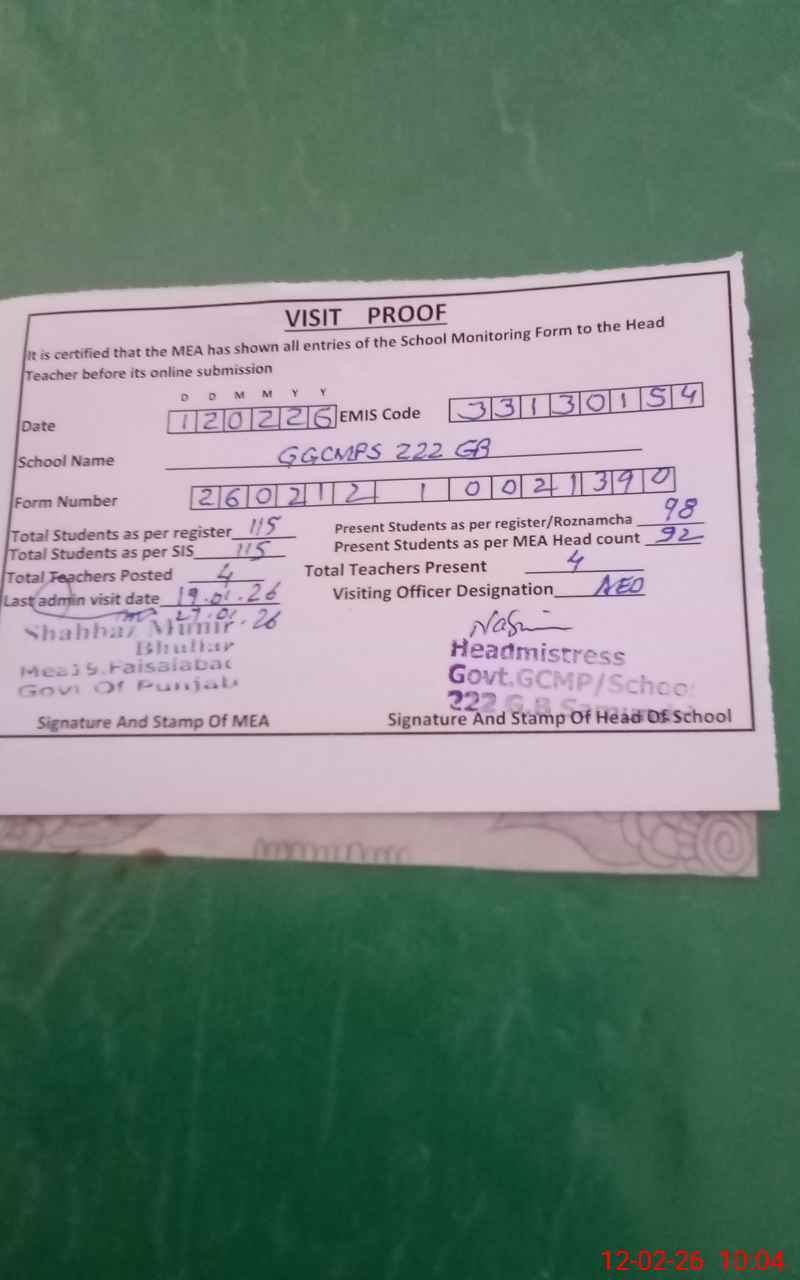 VISIT PROOF
It is certified that the MEA has shown all entries of the School Monitoring Form to the Head
Teacher before its online submission
D D M M Y Y
Date 120226 EMIS Code 33130154
School Name GGCMPS 222 GB
Form Number 260212 1 0021390
Total Students as per register 115 Present Students as per register/Roznamcha 98
Total Students as per SIS 115 Present Students as per MEA Head count 92
Total Teachers Posted 4 Total Teachers Present 4
Last admin visit date 19.01.26 Visiting Officer Designation AEO
27.01.26
Shahbaz Munir
Bhullar
Mea19.Faisalabad
Govt Of Punjab
Headmistress
Govt.GCMP/School
222 G.B
Signature And Stamp Of MEA Signature And Stamp Of Head Of School
12-02-26 10:04